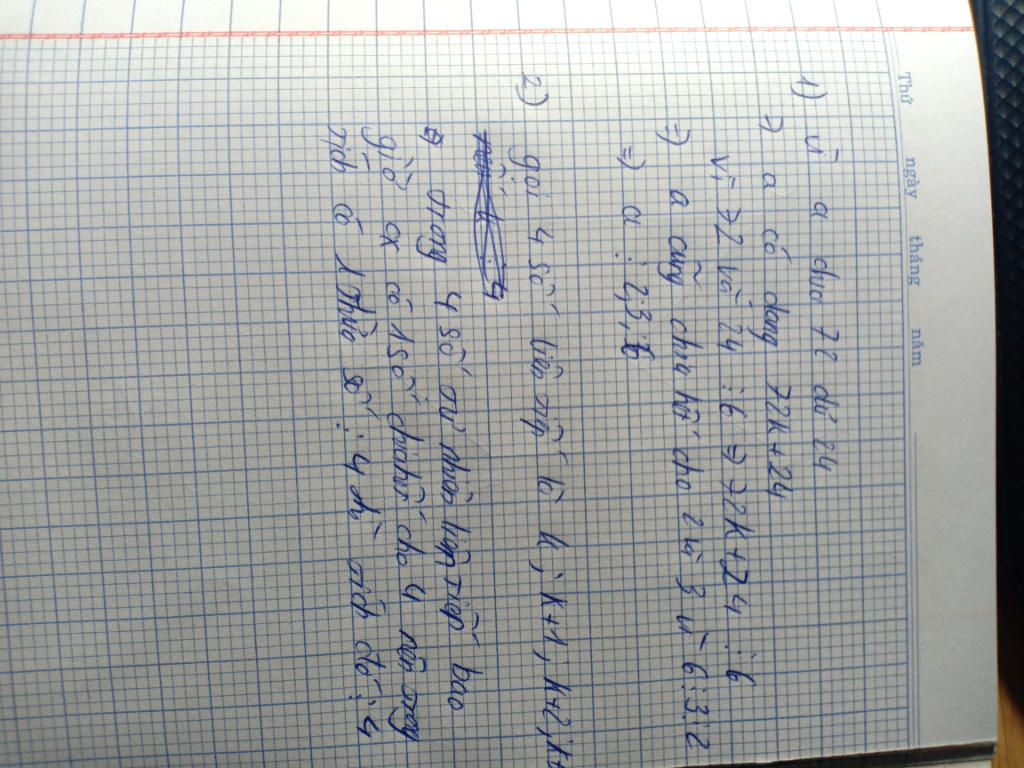 Thứ ngày tháng năm
1) Vì a chia 72 dư 24
=) a có dạng 72k+24
Vì 72 và 24 ⋮ 6 => 72k+24 ⋮ 6
=) a cũng chia hết cho 2 và 3 vì 6 ⋮ 3,2
=) a ⋮ 2,3,6
2) gọi 4 số liên tiếp là k; k+1; k+2; k+
trong 4 số tự nhiên liên tiếp bao
giờ có 1 số chia hết cho 4 nên trong
tích có 1 thừa số ⋮ 4 thì tích đó ⋮ 4